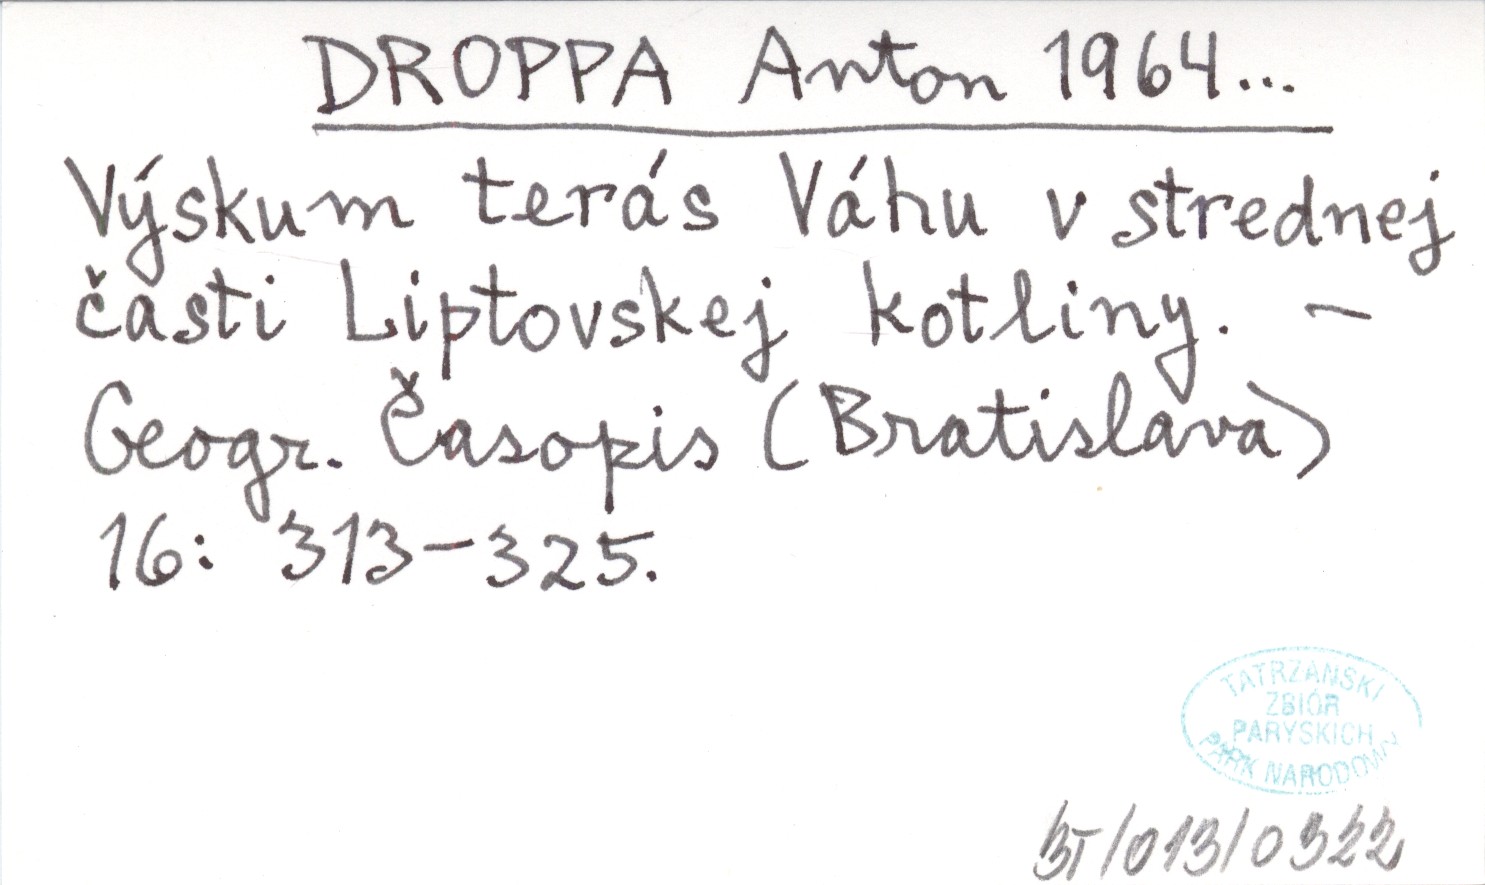 DROPPA Anton 1964...
Výskum terás Váhu v strednej
časti Liptovskej kotliny. –
Geogr. Časopis (Bratislava)
16: 313–325.
TATRZAŃSKI
ZBIÓR
PARYSKICH
PARK NARODOWY
BT/013/0322